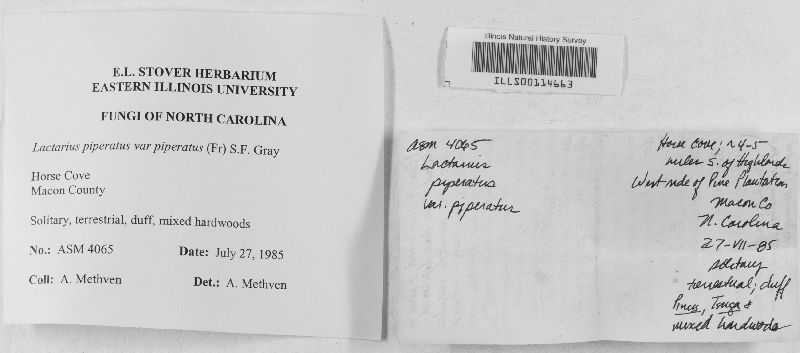 E.L. STOVER HERBARIUM
EASTERN ILLINOIS UNIVERSITY
FUNGI OF NORTH CAROLINA
Lactarius piperatus var piperatus (Fr) S.F. Gray
Horse Cove
Macon County
Solitary, terrestrial, duff, mixed hardwoods
No.: ASM 4065 Date: July 27, 1985
Coll: A. Methven Det.: A. Methven
Illinois Natural History Survey
ILLS00114663
ASM 4065
Lactarius
piperatus
var. piperatus
Horse Cove; ~4-5
miles S. of Highlands
West side of Pine Plantation
Macon Co
N. Carolina
27-VII-85
solitary
terrestrial; duff
Pinus, Tsuga &
mixed hardwoods